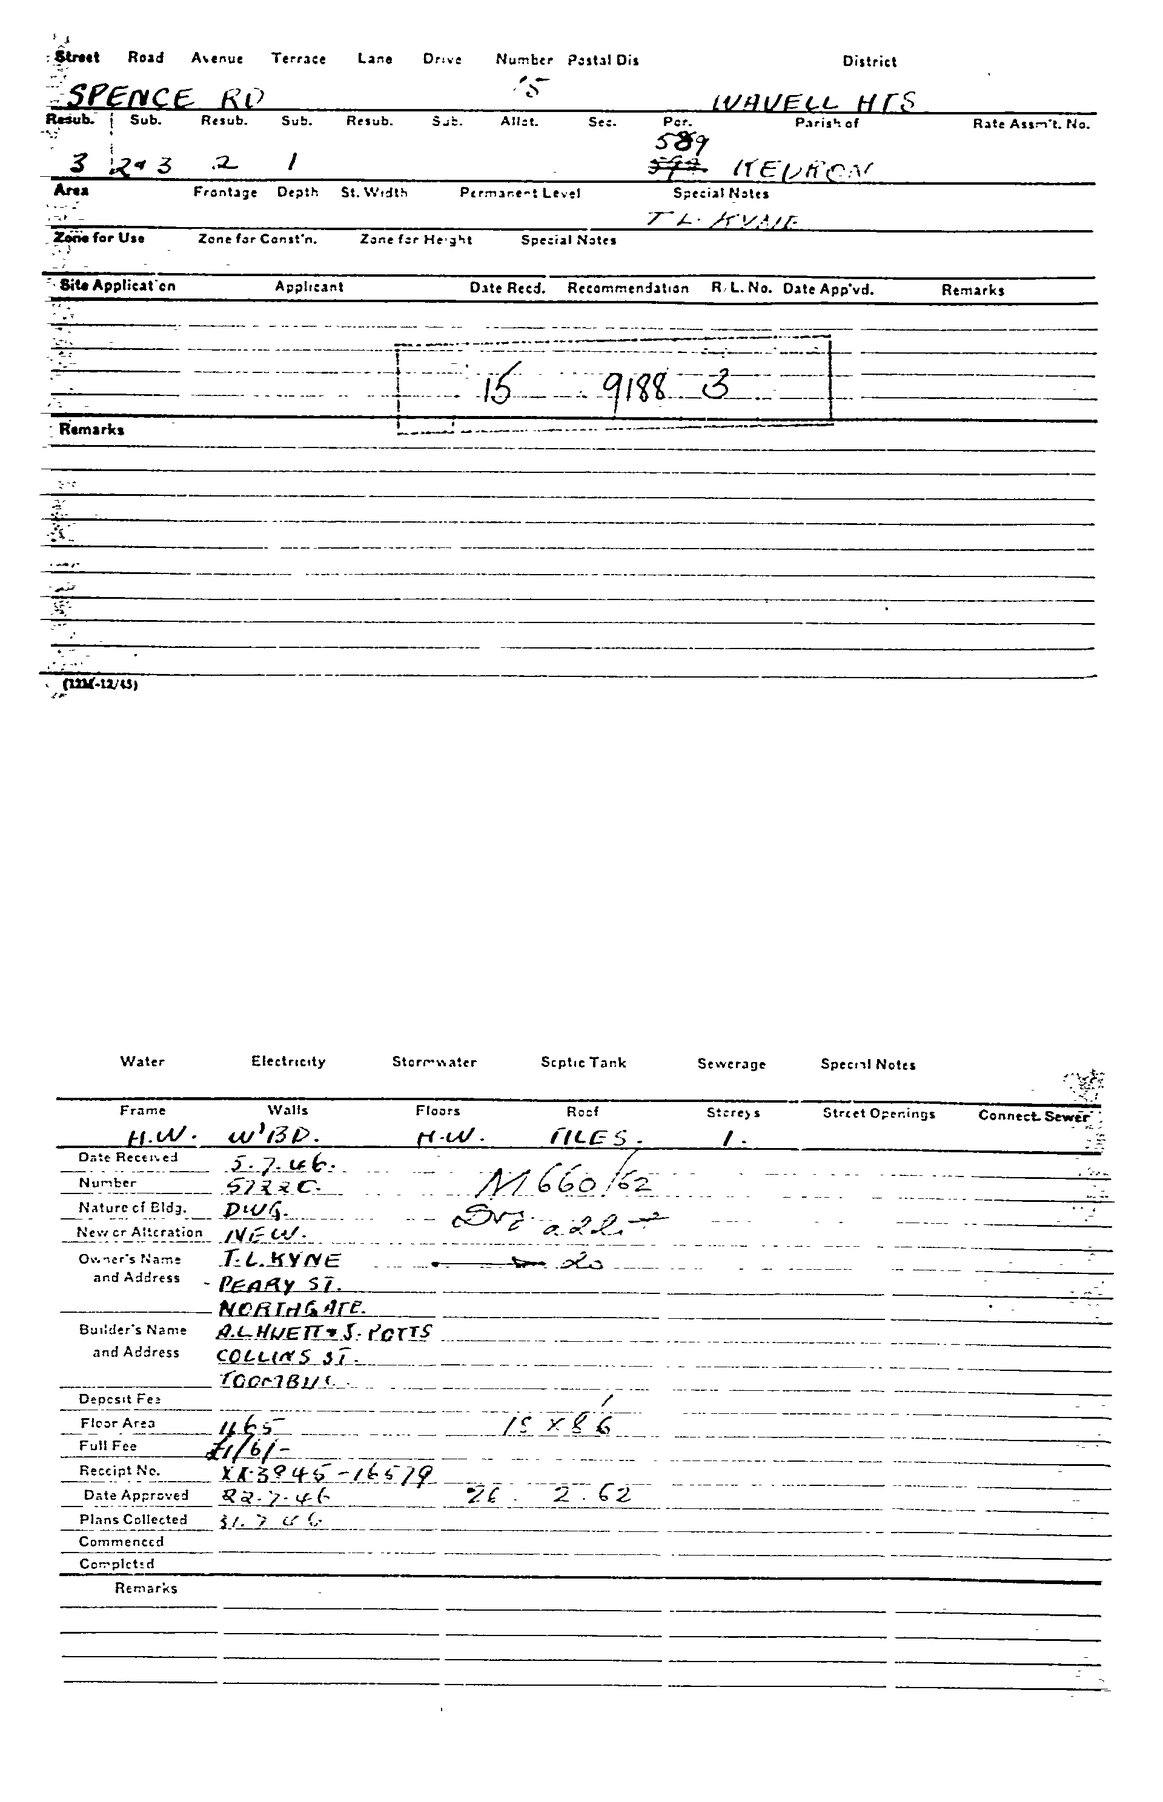 Street Road Avenue Terrace Lane Drive Number Postal Dis District
SPENCE RD 15 WAVELL HTS
Resub. Sub. Resub. Sub. Resub. Sub. Allot. Sec. Por. Parish of Rate Assm't. No.
589
3 2&3 2 1 KEDRON
Area Frontage Depth St. Width Permanent Level Special Notes
T L. KYNE
Zone for Use Zone for Const'n. Zone for Height Special Notes
Site Application Applicant Date Recd. Recommendation R.L. No. Date App'vd. Remarks
15 9188 3
Remarks
(12M-12/45)
Water Electricity Stormwater Septic Tank Sewerage Special Notes
Frame Walls Floors Roof Storeys Street Openings Connect. Sewer
H.W. W'BD. H.W. TILES. 1.
Date Received 5.7.46.
Number 5722C. M660/62
Nature of Bldg. DWG.
New or Alteration NEW.
Owner's Name T.L. KYNE do
and Address PEARY ST.
NORTHGATE.
Builder's Name A.L HUETT & J. POTTS
and Address COLLINS ST.
TOOMBUL.
Deposit Fee
Floor Area 1165 15 x 8 6
Full Fee £1/6/-
Receipt No. XX3945-16579
Date Approved 22.7.46 26. 2.62
Plans Collected 31.7 46
Commenced
Completed
Remarks